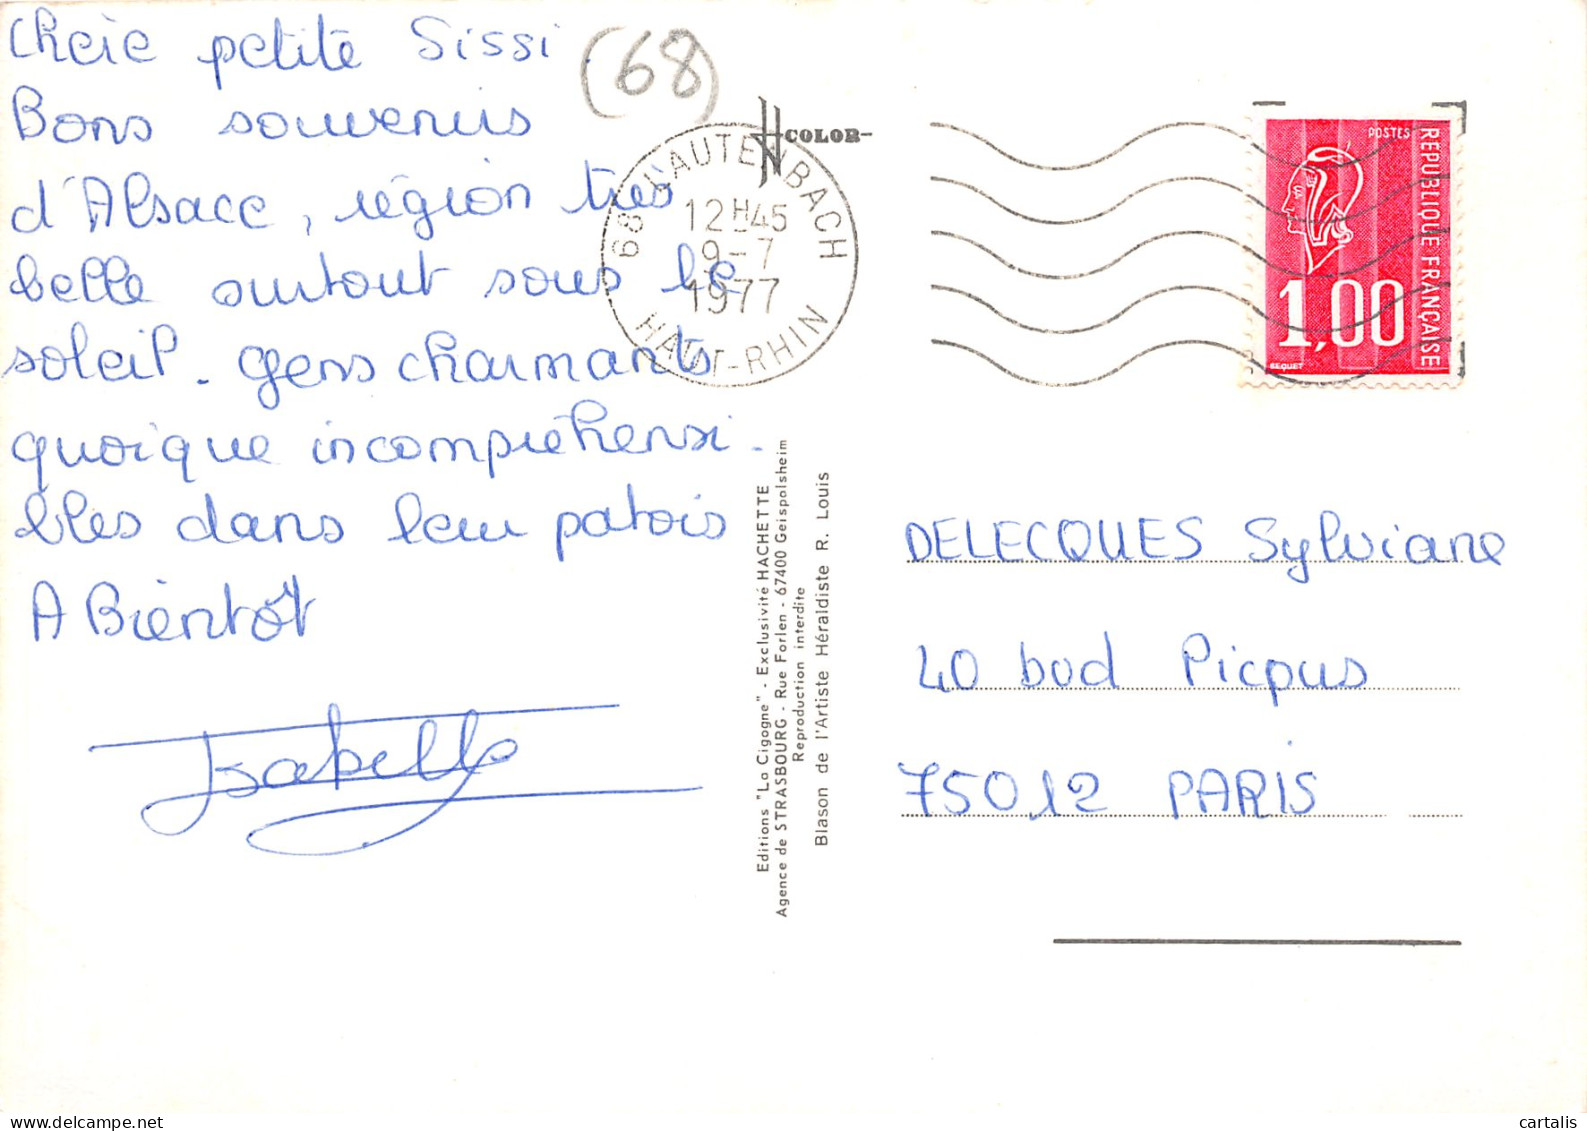 Chère petite Sissi
Bons souvenirs
d'Alsace, région très
belle surtout sous le
soleil. Gens charmants
quoique incompréhensi-
bles dans leur patois
A Bientôt
Isabelle
(68)
COLOR
68 LAUTENBACH
12H45
9-7
1977
HAUT-RHIN
POSTES
REPUBLIQUE FRANÇAISE
1,00
BEQUET
Editions "La Cigogne" - Exclusivité HACHETTE
Agence de STRASBOURG - Rue Forlen - 67400 Geispolsheim
Reproduction interdite
Blason de l'Artiste Héraldiste R. Louis
DELECQUES Sylviane
40 bvd Picpus
75012 PARIS
cartalis